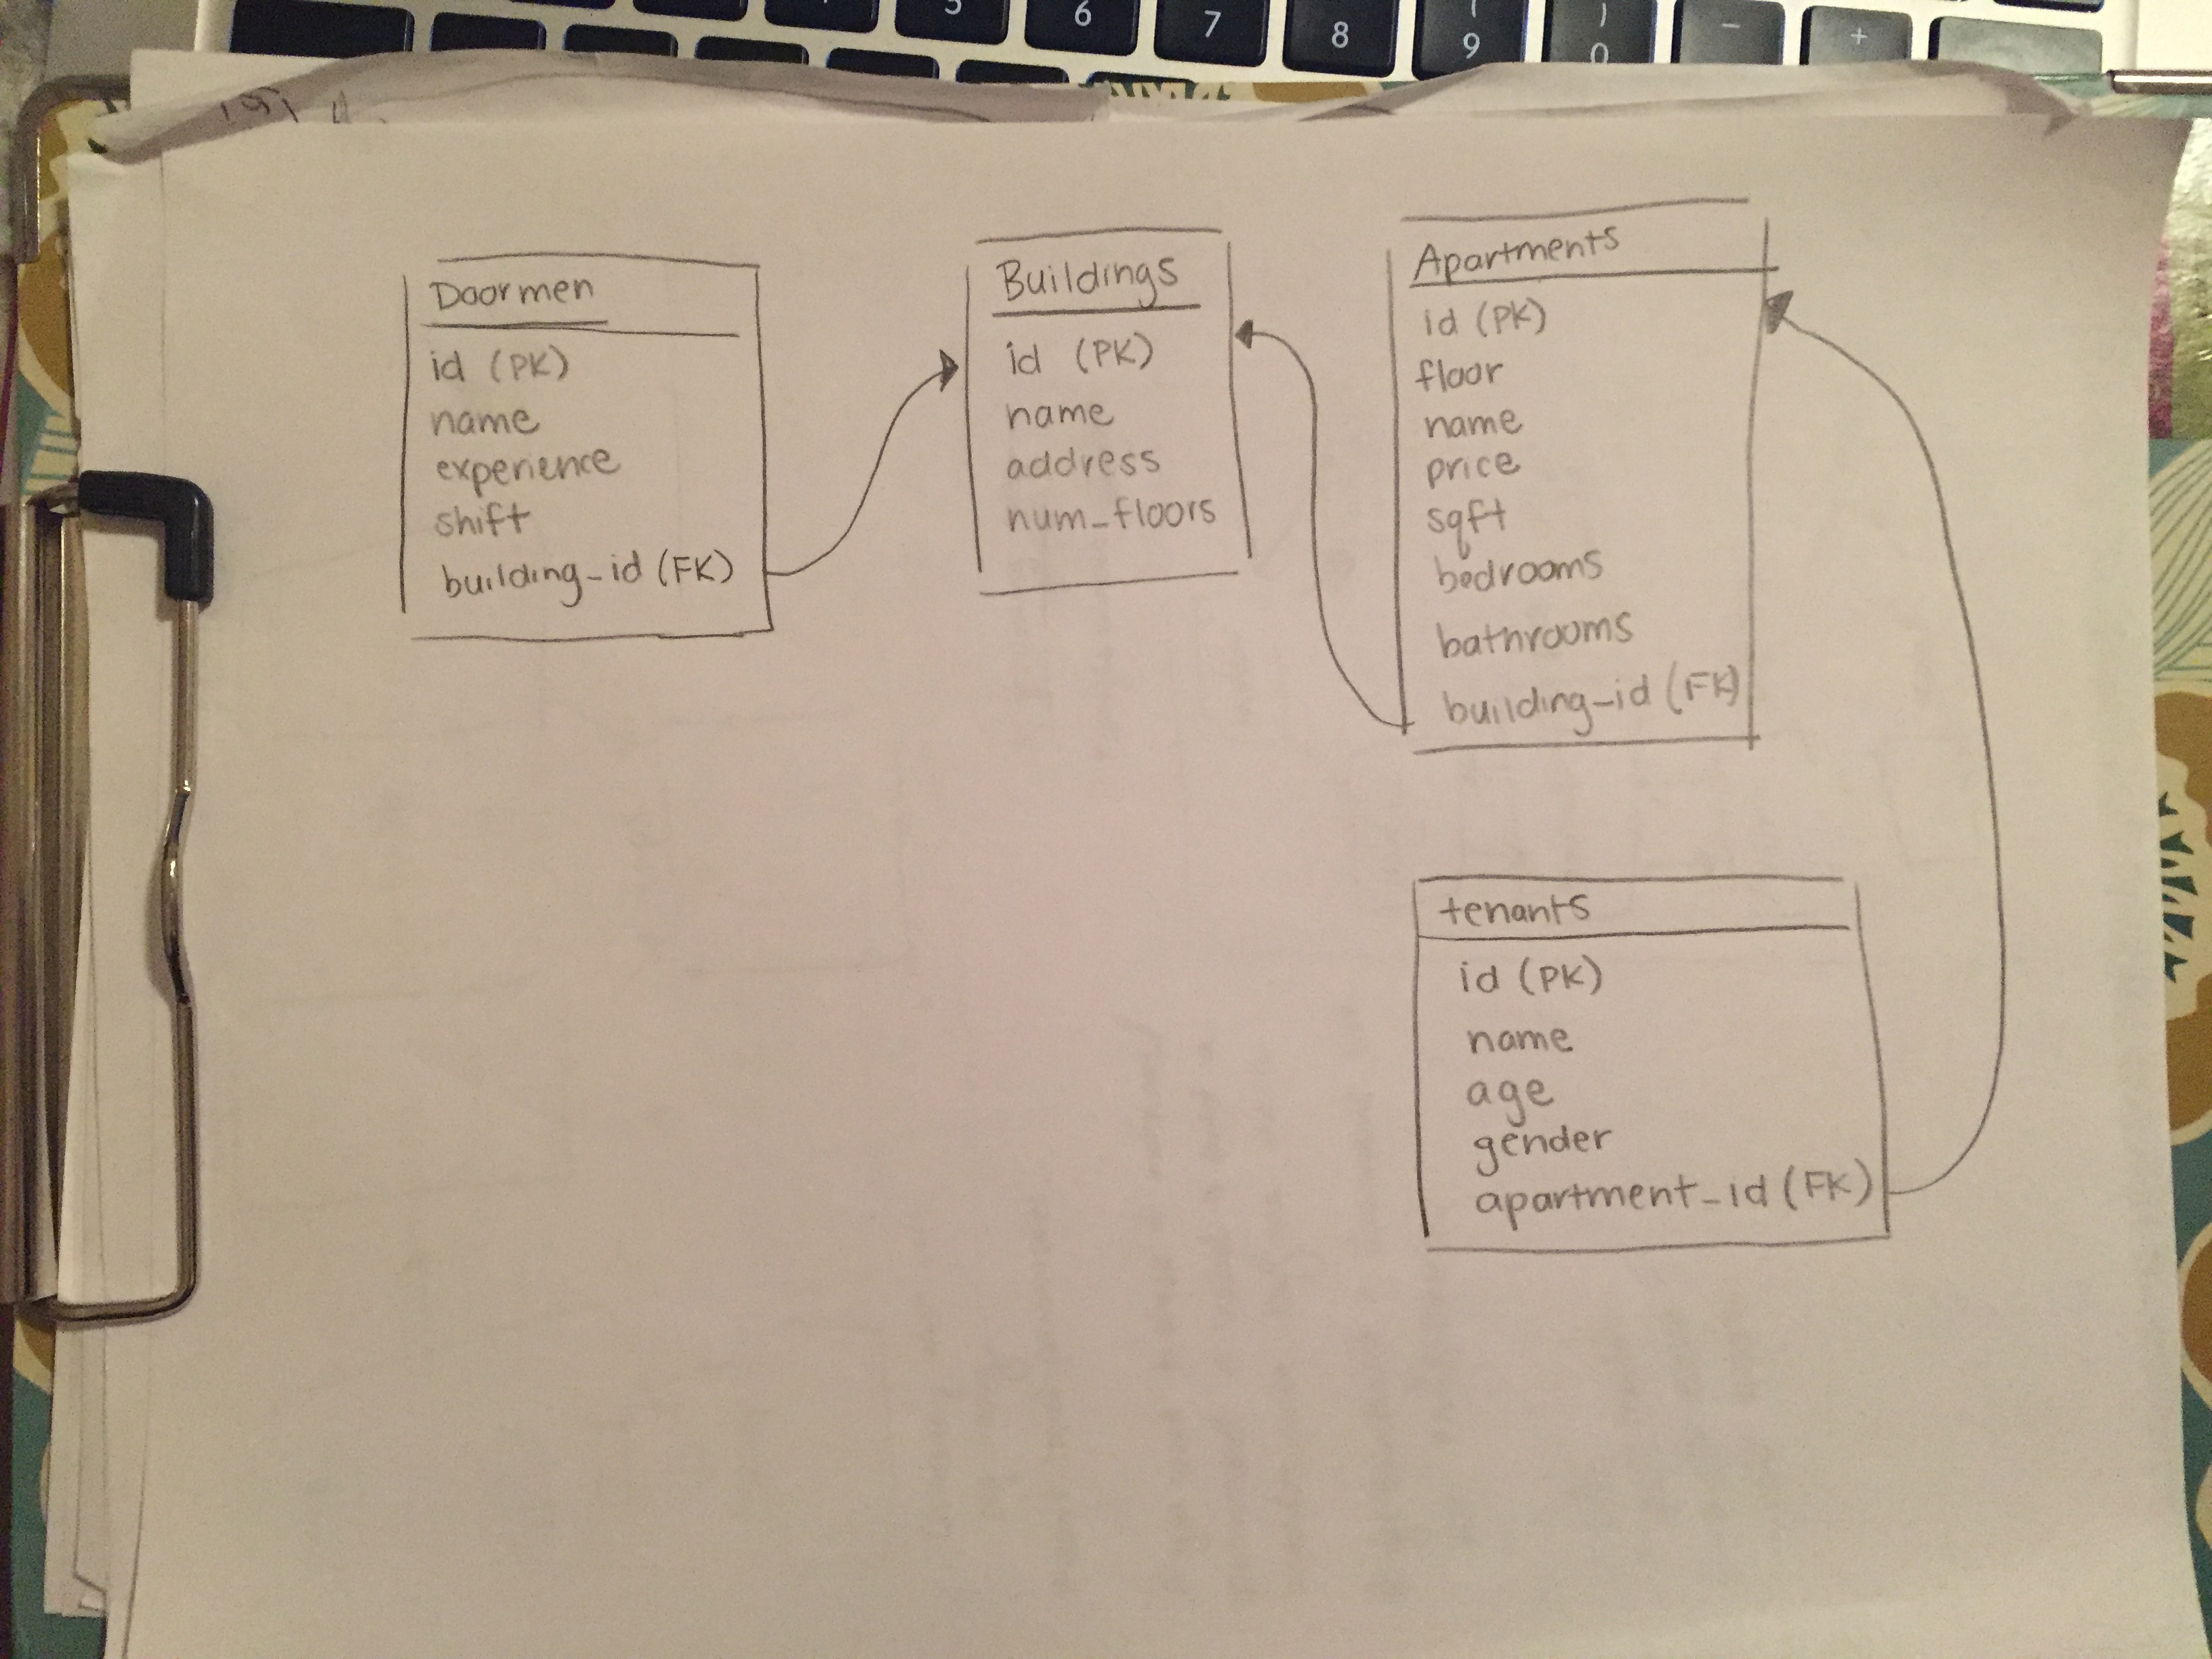 5 6 7 8 ( 9 ) 0 - +
Doormen
id (PK)
name
experience
shift
building_id (FK)
Buildings
id (PK)
name
address
num_floors
Apartments
id (PK)
floor
name
price
sqft
bedrooms
bathrooms
building_id (FK)
tenants
id (PK)
name
age
gender
apartment_id (FK)